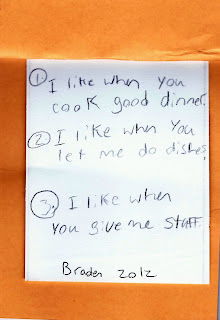 ① I like when you
cook good dinner.
② I like when You
let me do dishes.
③ I like when
you give me stuff.
Braden 2012